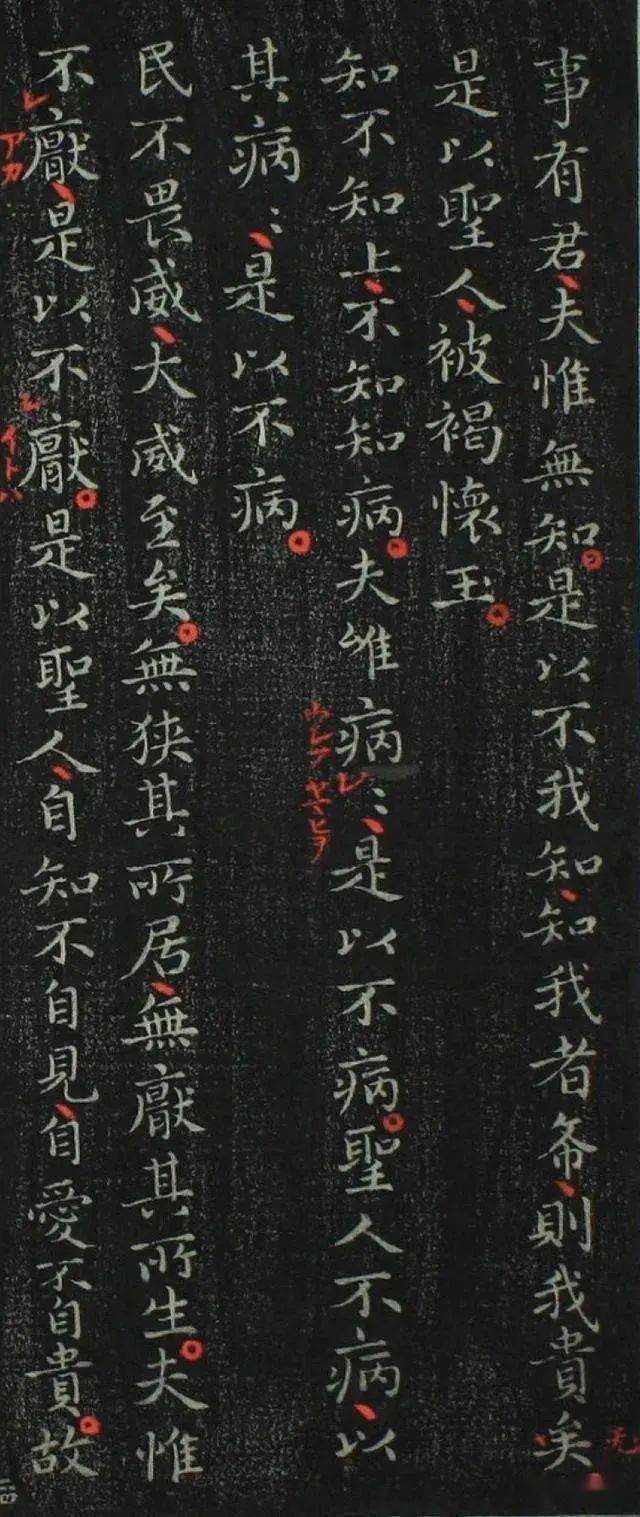 事有君夫惟無知是以不我知知我者希則我貴矣
是以聖人被褐懷玉
知不知上不知知病夫唯病〻是以不病聖人不病以
其病〻是以不病
民不畏威大威至矣無狹其所居無厭其所生夫惟
不厭是以不厭是以聖人自知不自見自愛不自貴故
レ
アカ
レ
イトハ
レ